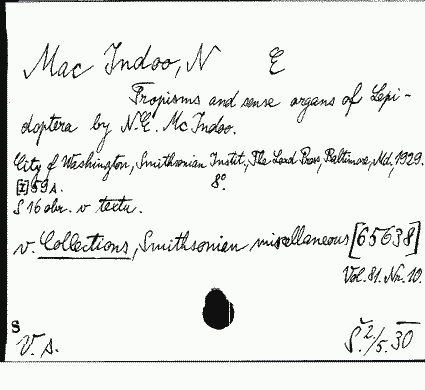 Mac Indoo, N E
Tropisms and sense organs of Lepi-
doptera by N.E. Mc Indoo.
City of Washington, Smithsonian Instit., The Lord Baltimore, Md., 1929.
[I] 59 s. 8°.
S 16 obr. v textu.
v. Collections, Smithsonian miscellaneous [65638]
Vol. 81. Nr. 10.
S
V. s.
Š. 2/5. 30